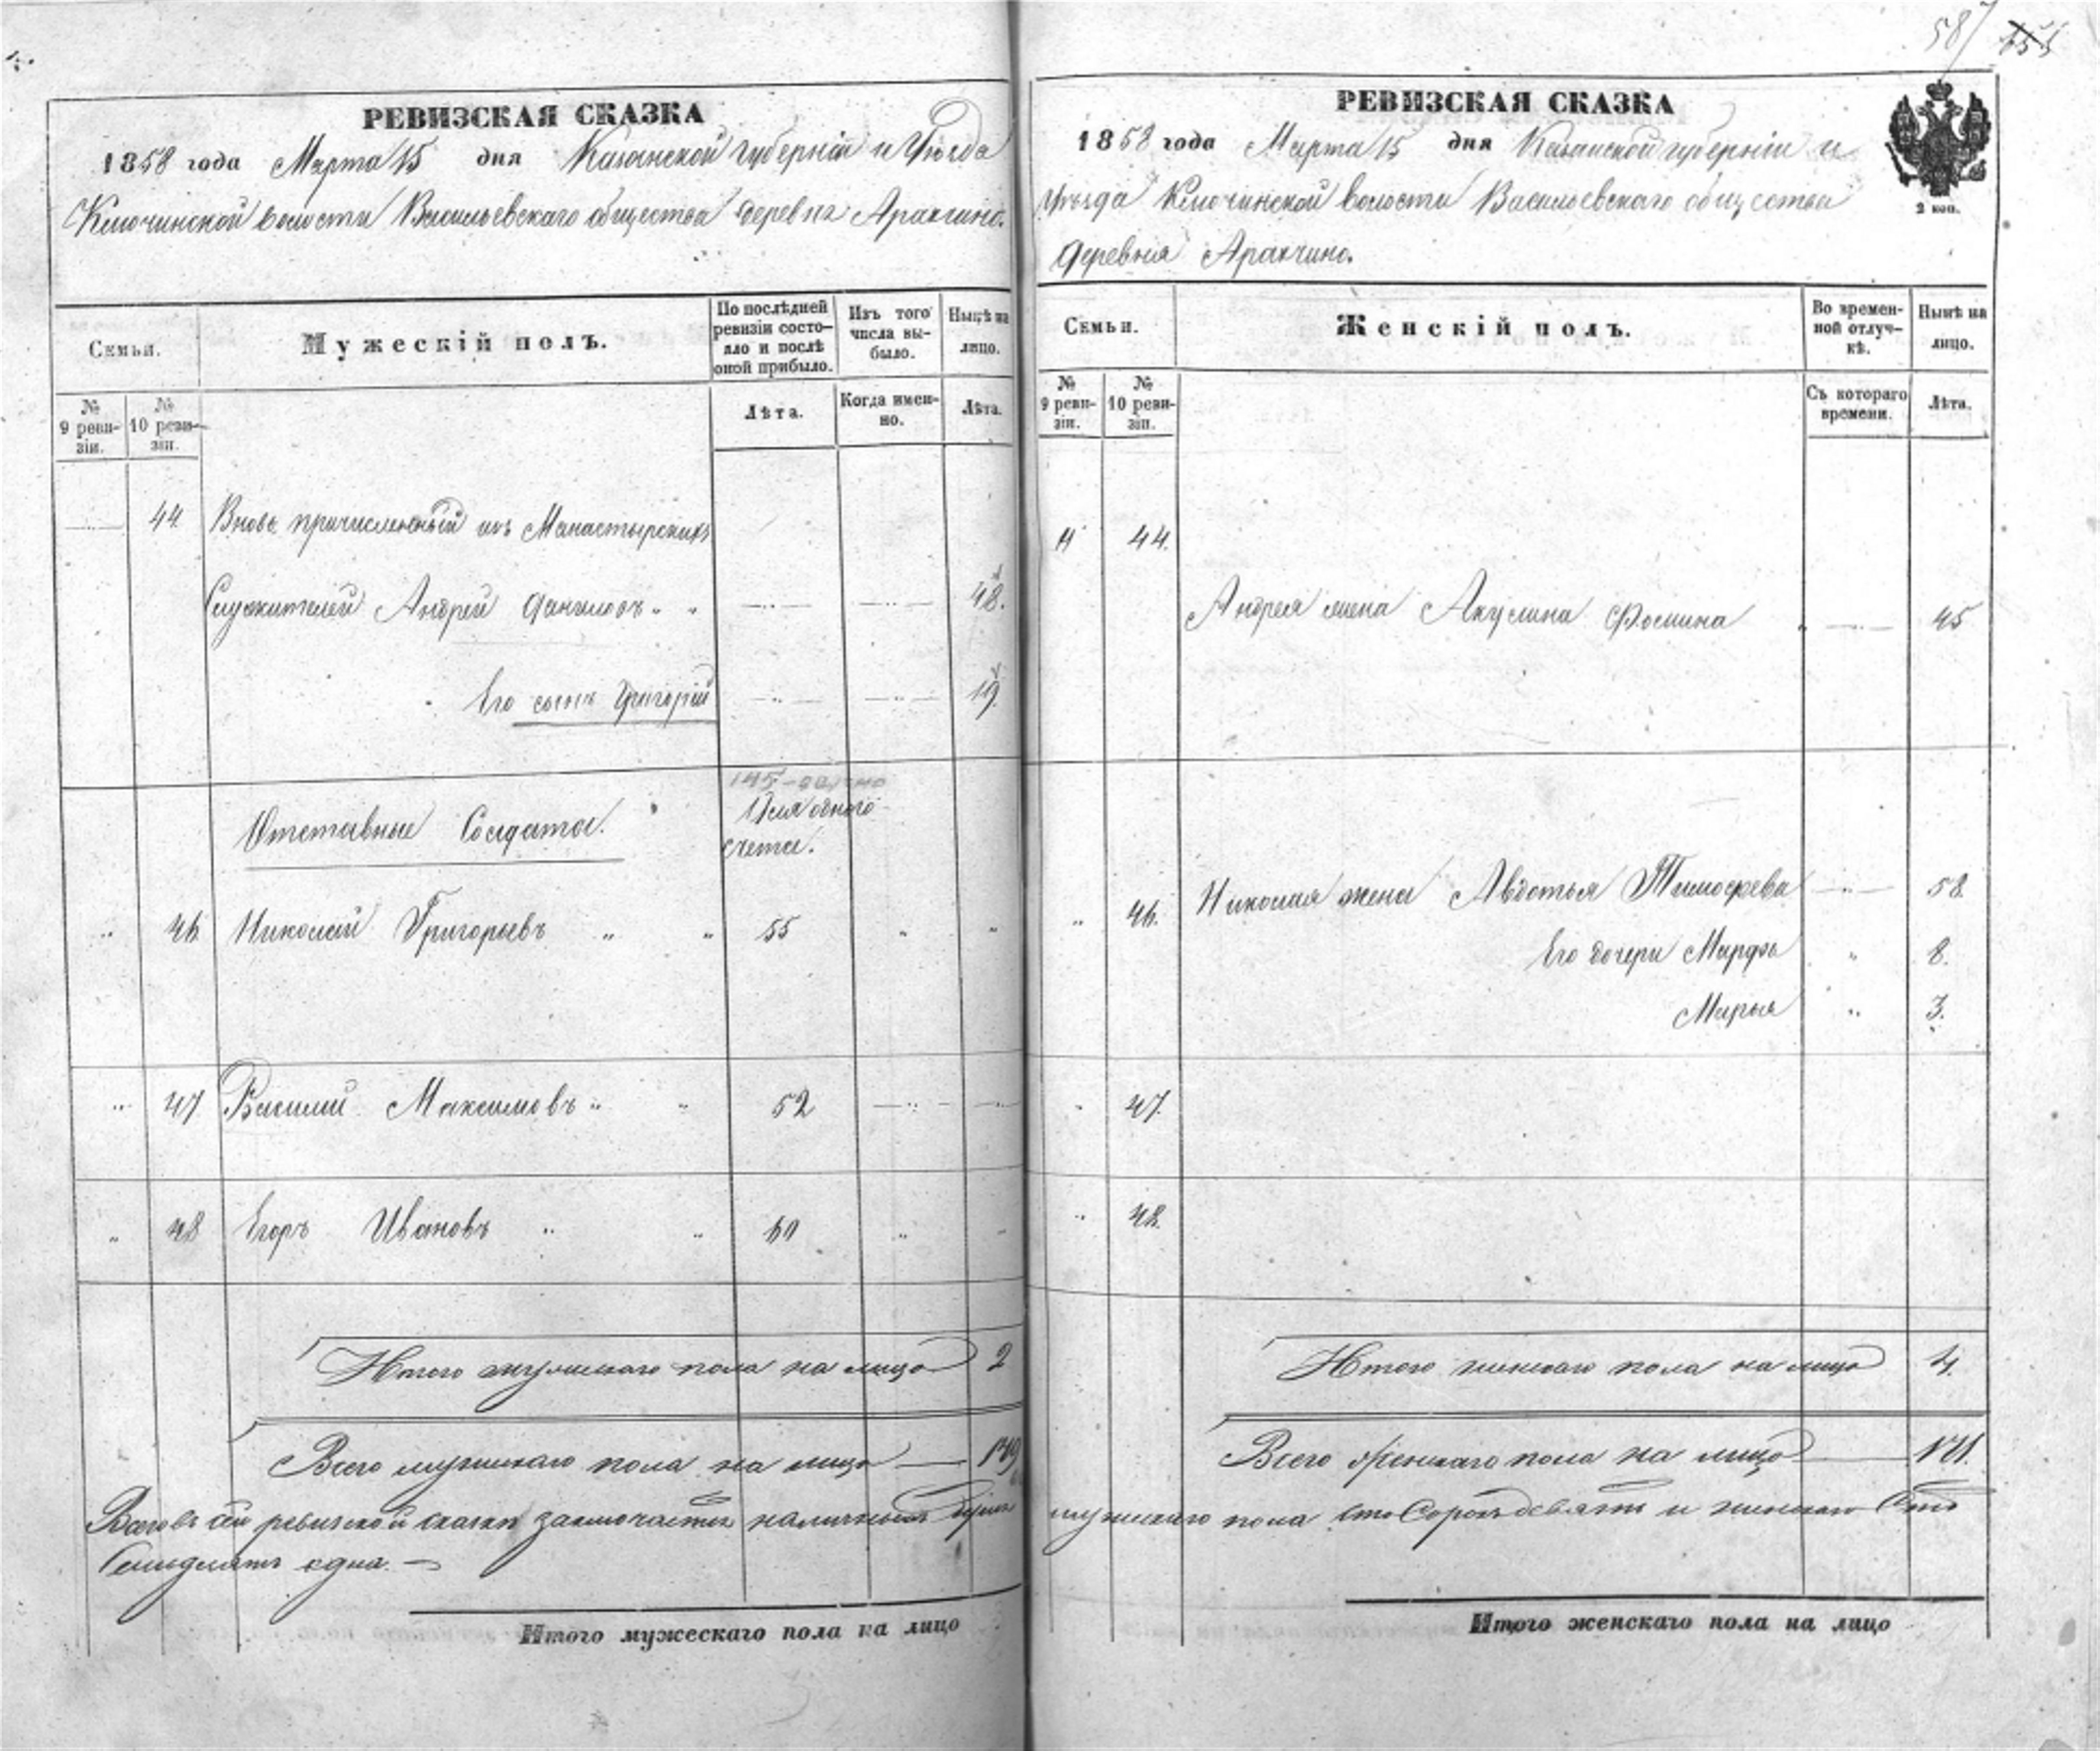 РЕВИЗСКАЯ СКАЗКА
1858 года Марта 15 дня Казанской губерніи и Уѣзда
Ключинской волости Васильевскаго общества деревня Аракчино.
Семьи.
Мужескій полъ.
По послѣдней ревизіи состояло и послѣ оной прибыло.
Изъ того числа выбыло.
Нынѣ на лицо.
№ 9 ревизіи.
№ 10 ревизіи.
Лѣта.
Когда именно.
Лѣта.
44 Вновь причисленный изъ Манастырскихъ
Служителей Андрей Даниловъ 48.
Его сынъ Григорій 19.
Отставные Солдаты. Для одного
счета.
46. Николай Григорьевъ 55
47 Василий Максимовъ 52
48 Егоръ Ивановъ 60
Итого мужескаго пола на лицо 2
Всего мужескаго пола на лицо 149
Всего въ сей ревизской сказки заключается наличныхъ душъ
Семидесятъ одна.
Итого мужескаго пола на лицо
587
РЕВИЗСКАЯ СКАЗКА
1858 года Марта 15 дня Казанской губерніи и
Уѣзда Ключинской волости Васильевскаго общества
деревня Аракчино.
2 коп.
Семьи.
Женскій полъ.
Во временной отлучкѣ.
Нынѣ на лицо.
№ 9 ревизіи.
№ 10 ревизіи.
Съ котораго времени.
Лѣта.
44.
Андрея жена Акулина Фомина 45
46. Николая жена Авдотья Тимофеева 58.
Его дочери Марфа 8.
Марья 3.
47.
48.
Итого женскаго пола на лицо 4.
Всего женскаго пола на лицо 171.
мужескаго пола сто Сорокъ девять и женскаго Сто
Итого женскаго пола на лицо